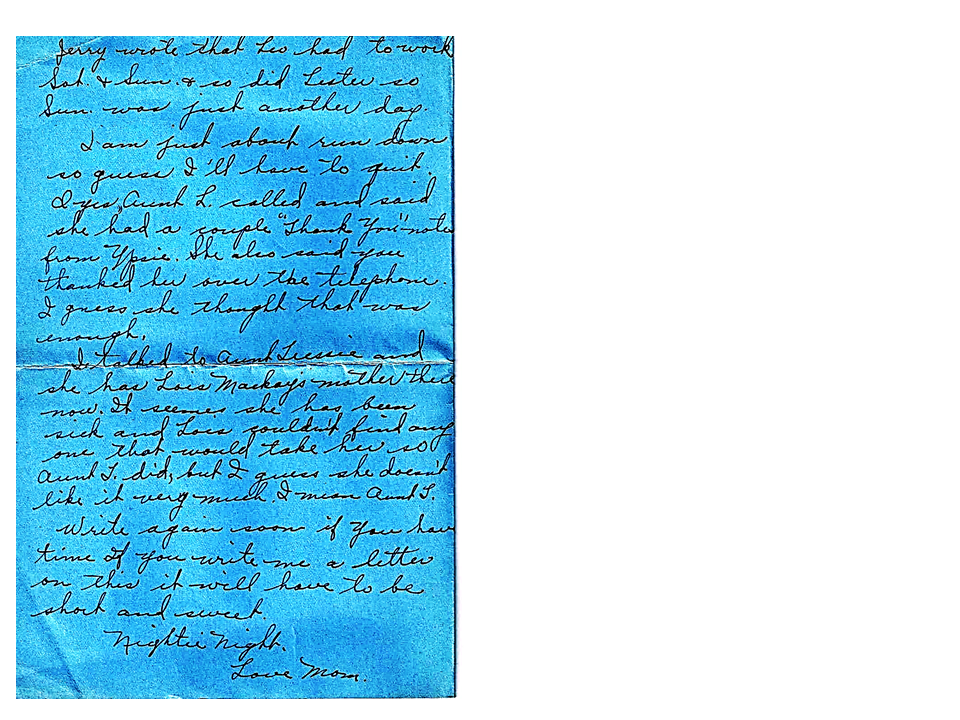 Jerry wrote that Leo had to work
Sat. & Sun. & so did Lester so
Sun. was just another day.
I am just about run down
so guess I'll have to quit.
O yes, Aunt L. called and said
she had a couple "Thank You" notes
from Ypsie. She also said you
thanked her over the telephone.
I guess she thought that was
enough.
I talked to Aunt Tressie and
she has Lois Mackay's mother there
now. It seems she has been
sick and Lois couldn't find any
one that would take her so
Aunt T. did, but I guess she doesn't
like it very much. I mean Aunt T.
Write again soon if you have
time If you write me a letter
on this it will have to be
short and sweet.
Nightie Night.
Love Mom.